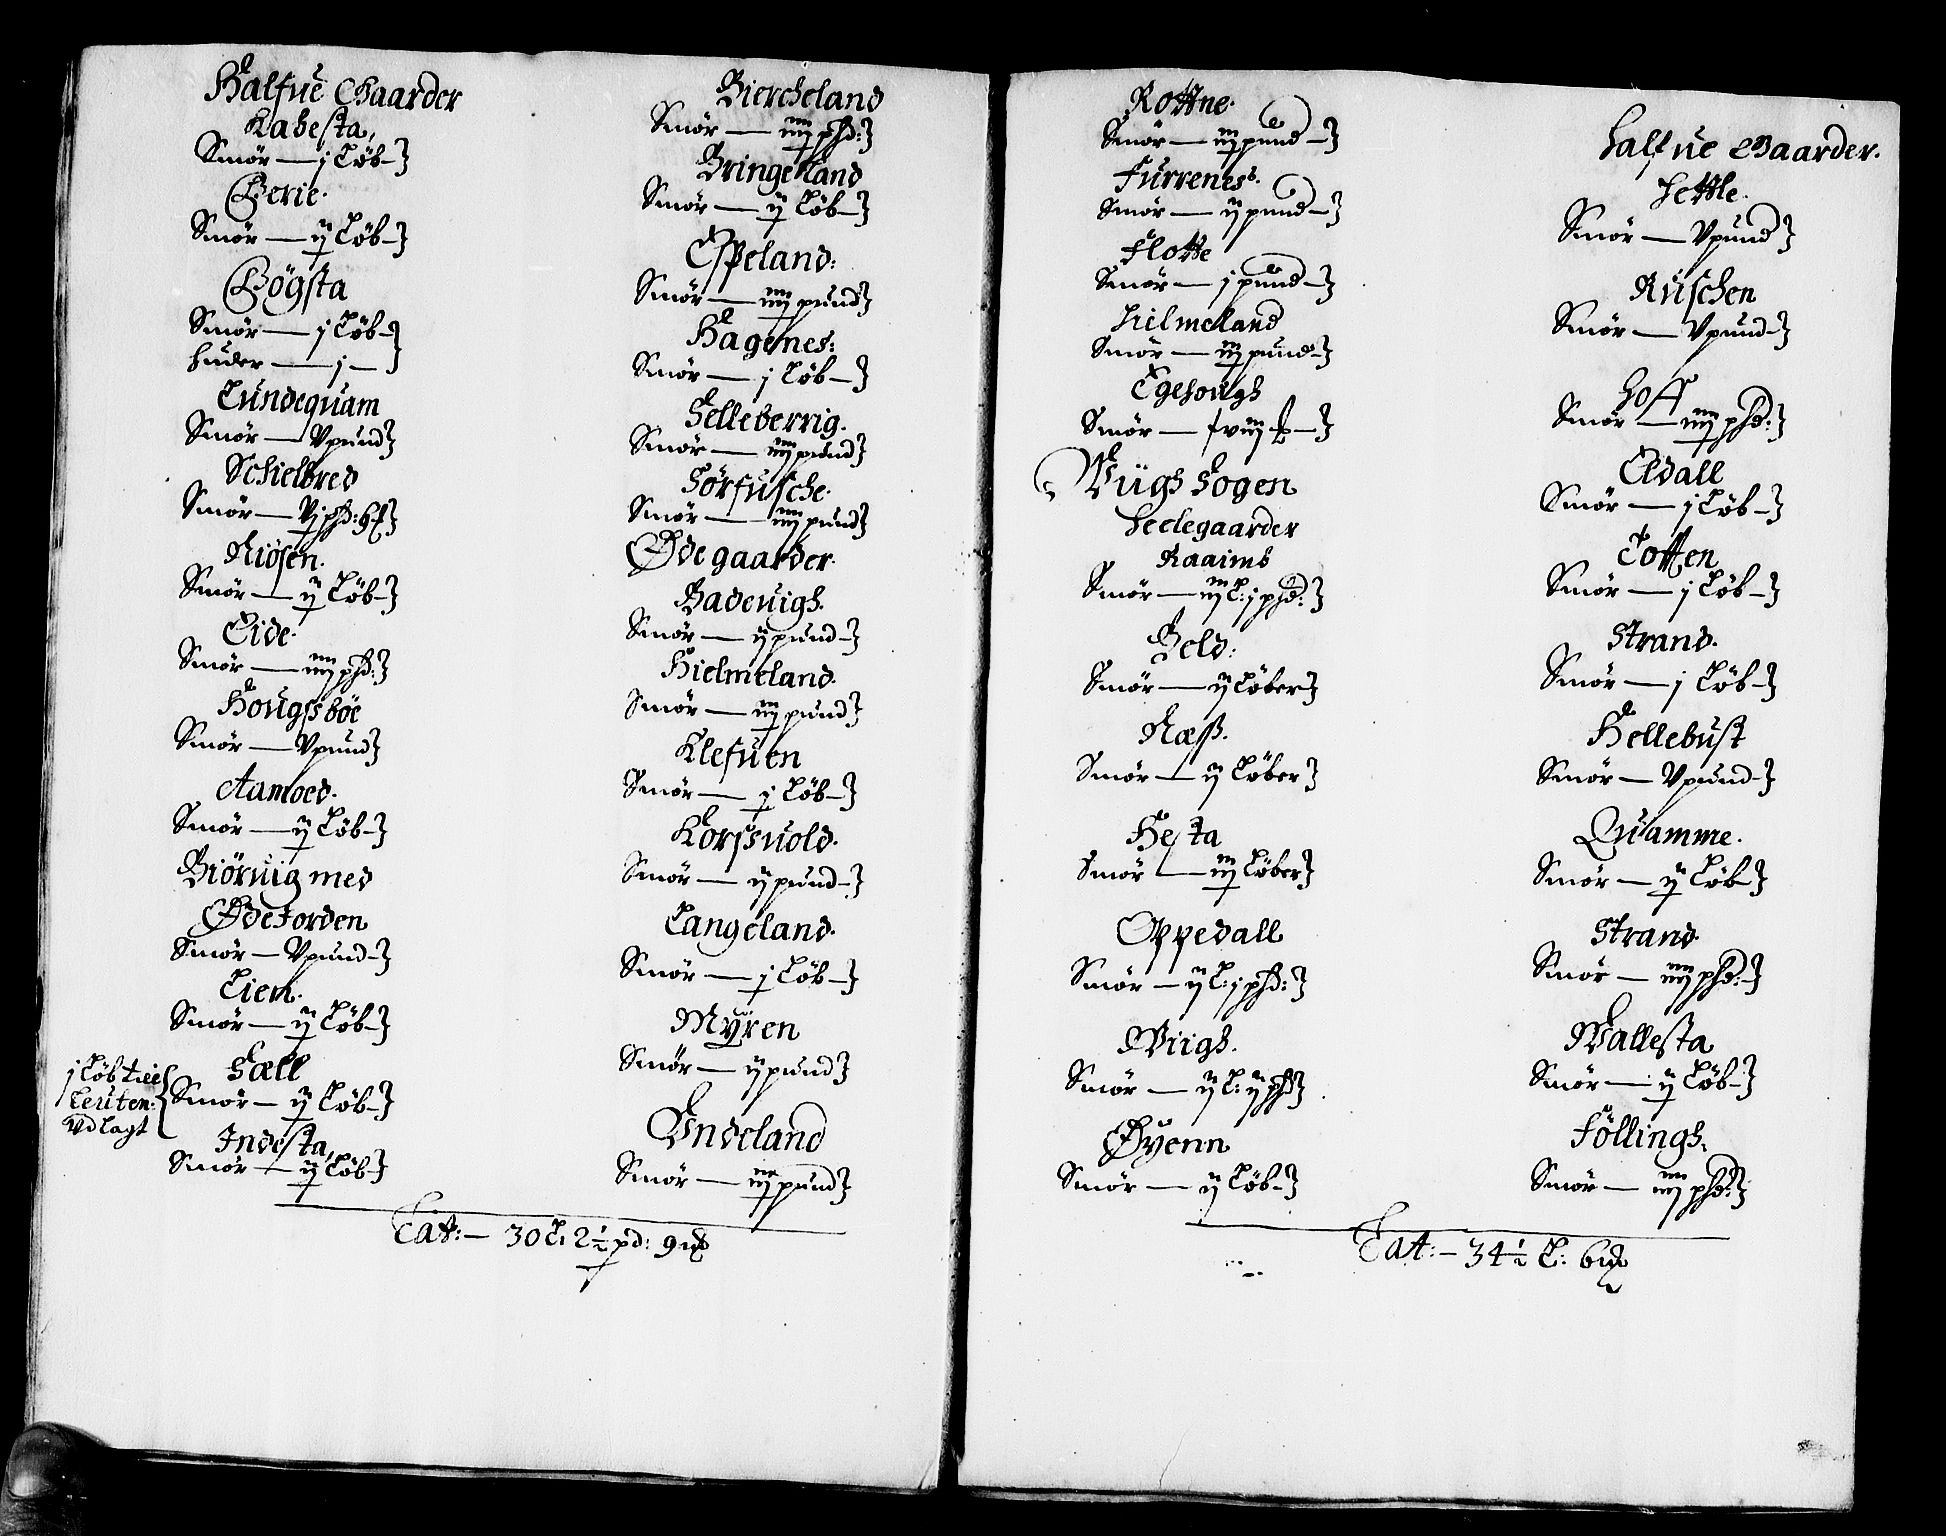 Halfue Gaarder
Kahesta,
Smör — j Löb –
Berie.
Smör — ij Löb –
Bögsta
Smör — j Löb –
huder — j —
Lundequam
Smör — V pund
Schielbred
Smör — Vj phd:
Niösen.
Smör — ij Löb –
Eide.
Smör — iiij phd:
Hougssböe
Smör — V pund
Aamoed.
Smör — ij Löb –
Biöruig med
Ødeforden
Smör — V pund –
Liem.
Smör — ij Löb –
j Löb
Leuten:
Vdlagt
Sæll
Smör — ij Löb –
Indesta,
Smör — ij Löb
Biercheland
Smör — iiij phd:
Bringeland
Smör — ij Löb –
Espeland:
Smör — iiij pund
Hagenes:
Smör — j Löb –
Selleberrig.
Smör — iiij pund
Sörfusche.
Smör — iiij pund
Ødegaarder.
Badeuigh.
Smör — ij pund –
Hielmeland.
Smör — iij pund
Klefuen
Smör — j Löb –
Korssuold.
Smör — ij pund –
Langeland.
Smör — j Löb –
Myren
Smör — ij pund
Vndeland
Smör — iij pund
Lat: — 30 L: 2 1/2 pd: 9
Rottne.
Smör — iij pund –
Furrenes.
Smör — ij pund –
Flotte
Smör — j pund –
Hielmeland
Smör — iij pund –
Egehough
Smör —
Wiigh Sogen
Heelegaarder
Raaims
Smör — iij L: j phd:
Beld:
Smör — ij Löber
Næss.
Smör — ij Löber
Hesta
Smör — iij Löber
Oppedall
Smör — ij L: j phd:
Wiigh.
Smör — ij L: ij phd
Øyenn
Smör — ij Löb –
Halfue Gaarder.
Settle.
Smör — V pund
Ruschen
Smör — V pund –
Hoff
Smör — iiij phd:
Eldall
Smör — j Löb –
Totten
Smör — j Löb –
Strand.
Smör — j Löb –
Hellebust
Smör — V pund –
Quamme.
Smör — ij Löb –
Strand.
Smör — iiij phd: –
Wallesta
Smör — ij Löb –
Föllingh.
Smör — iiij phd:
Lat: — 34 1/2 L: 6